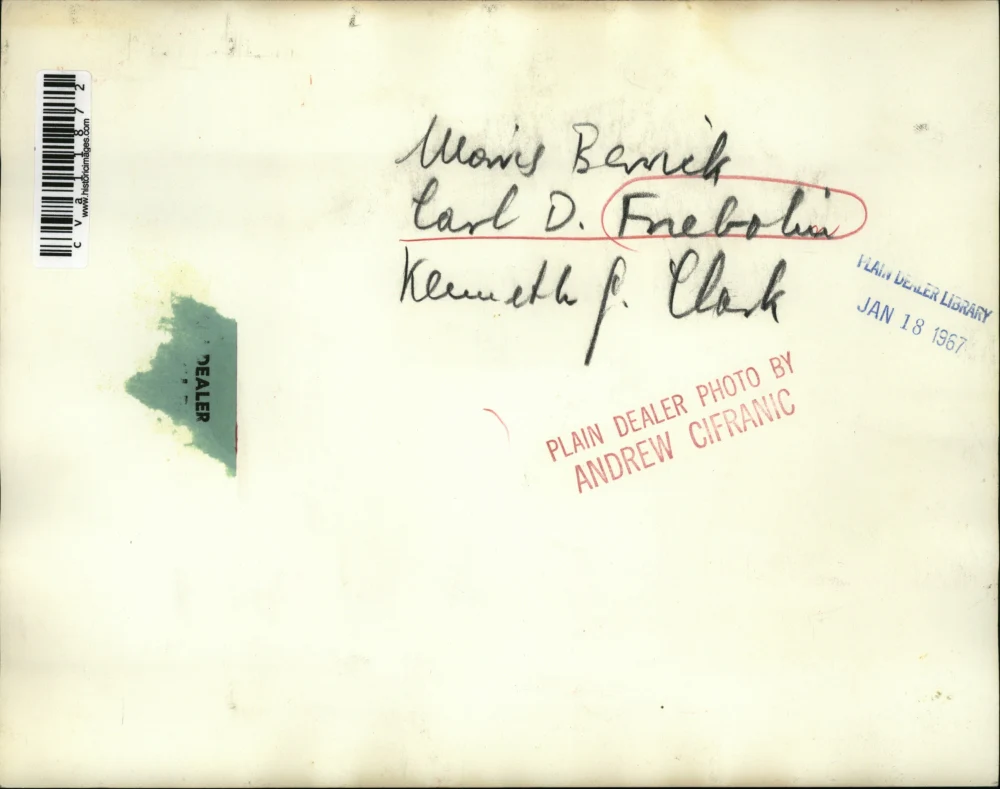 cva11872
www.historicimages.com
Morris Berrick
Carl D. Friebolin
Kenneth J. Clark
PLAIN DEALER LIBRARY
JAN 18 1967
DEALER
PLAIN DEALER PHOTO BY
ANDREW CIFRANIC